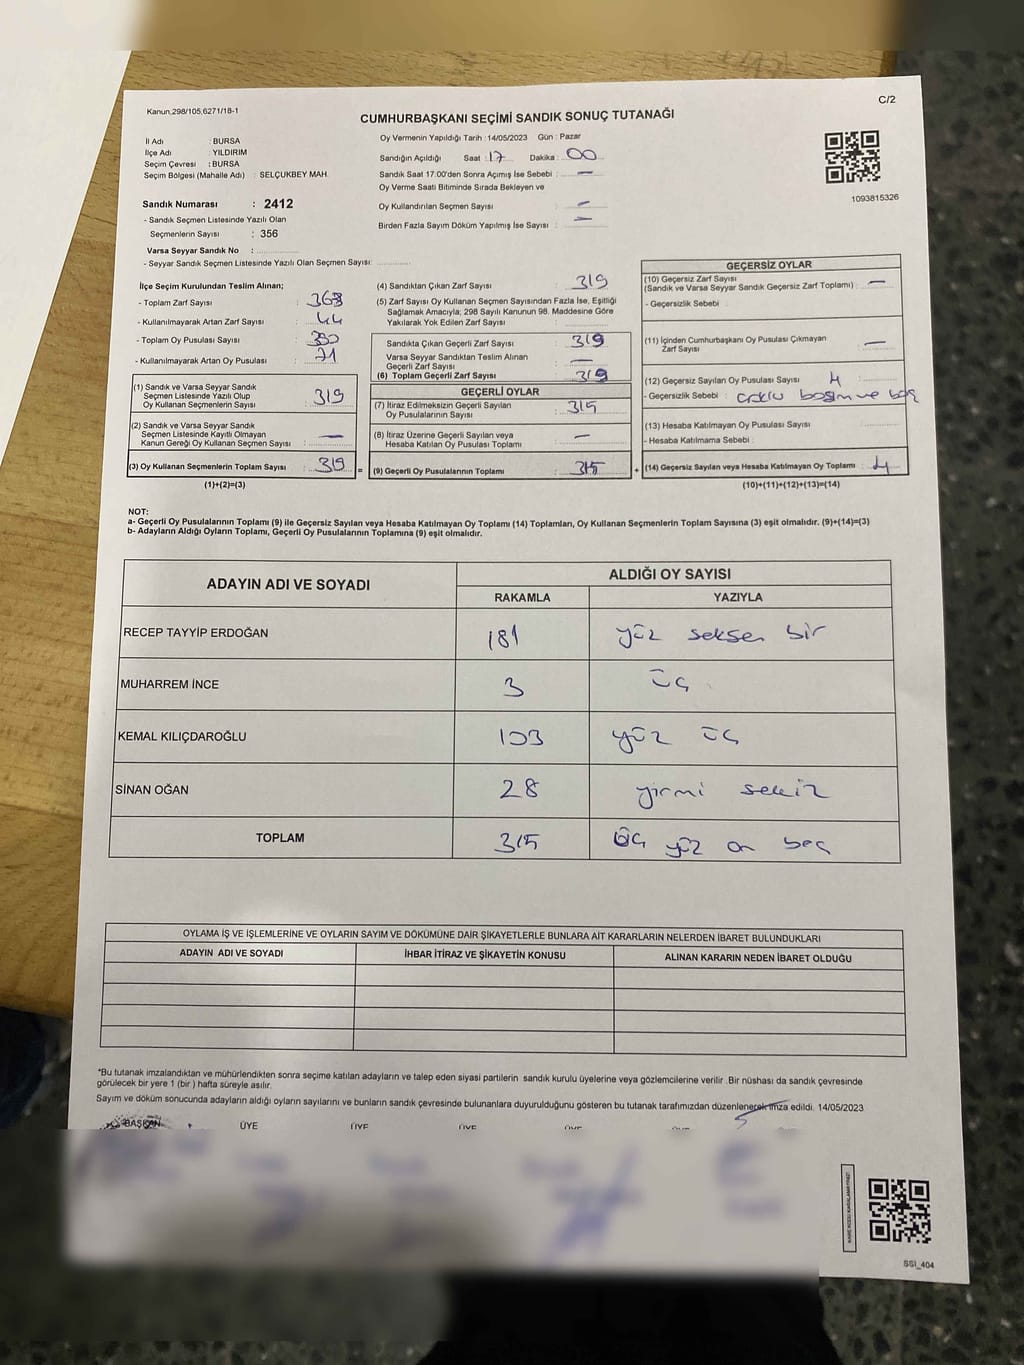 Kanun,298/105,6271/18-1
C/2
CUMHURBAŞKANI SEÇİMİ SANDIK SONUÇ TUTANAĞI
İl Adı : BURSA
İlçe Adı : YILDIRIM
Seçim Çevresi : BURSA
Seçim Bölgesi (Mahalle Adı) : SELÇUKBEY MAH.
Sandık Numarası : 2412
- Sandık Seçmen Listesinde Yazılı Olan
Seçmenlerin Sayısı : 356
Varsa Seyyar Sandık No :
- Seyyar Sandık Seçmen Listesinde Yazılı Olan Seçmen Sayısı:
Oy Vermenin Yapıldığı Tarih : 14/05/2023 Gün : Pazar
Sandığın Açıldığı Saat : 17 Dakika : 00
Sandık Saat 17:00'den Sonra Açımış İse Sebebi : —
Oy Verme Saati Bitiminde Sırada Bekleyen ve
Oy Kullandırılan Seçmen Sayısı : —
Birden Fazla Sayım Döküm Yapılmış İse Sayısı : —
1093815326
İlçe Seçim Kurulundan Teslim Alınan;
- Toplam Zarf Sayısı : 363
- Kullanılmayarak Artan Zarf Sayısı : 44
- Toplam Oy Pusulası Sayısı : 390
- Kullanılmayarak Artan Oy Pusulası : 71
(1) Sandık ve Varsa Seyyar Sandık
Seçmen Listesinde Yazılı Olup
Oy Kullanan Seçmenlerin Sayısı : 319
(2) Sandık ve Varsa Seyyar Sandık
Seçmen Listesinde Kayıtlı Olmayan
Kanun Gereği Oy Kullanan Seçmen Sayısı : —
(3) Oy Kullanan Seçmenlerin Toplam Sayısı : 319 =
(1)+(2)=(3)
(4) Sandıktan Çıkan Zarf Sayısı : 319
(5) Zarf Sayısı Oy Kullanan Seçmen Sayısından Fazla İse, Eşitliği
Sağlamak Amacıyla; 298 Sayılı Kanunun 98. Maddesine Göre
Yakılarak Yok Edilen Zarf Sayısı :
Sandıkta Çıkan Geçerli Zarf Sayısı : 319
Varsa Seyyar Sandıktan Teslim Alınan
Geçerli Zarf Sayısı : —
(6) Toplam Geçerli Zarf Sayısı : 319
GEÇERLİ OYLAR
(7) İtiraz Edilmeksizin Geçerli Sayılan
Oy Pusulalarının Sayısı : 315
(8) İtiraz Üzerine Geçerli Sayılan veya
Hesaba Katılan Oy Pusulası Toplamı : —
(9) Geçerli Oy Pusulalarının Toplamı : 315 +
GEÇERSİZ OYLAR
(10) Geçersiz Zarf Sayısı
(Sandık ve Varsa Seyyar Sandık Geçersiz Zarf Toplamı) : —
- Geçersizlik Sebebi :
(11) İçinden Cumhurbaşkanı Oy Pusulası Çıkmayan
Zarf Sayısı : —
(12) Geçersiz Sayılan Oy Pusulası Sayısı : 4
- Geçersizlik Sebebi : ve boş
(13) Hesaba Katılmayan Oy Pusulası Sayısı :
- Hesaba Katılmama Sebebi :
(14) Geçersiz Sayılan veya Hesaba Katılmayan Oy Toplamı : 4
(10)+(11)+(12)+(13)=(14)
NOT:
a- Geçerli Oy Pusulalarının Toplamı (9) ile Geçersiz Sayılan veya Hesaba Katılmayan Oy Toplamı (14) Toplamları, Oy Kullanan Seçmenlerin Toplam Sayısına (3) eşit olmalıdır. (9)+(14)=(3)
b- Adayların Aldığı Oyların Toplamı, Geçerli Oy Pusulalarının Toplamına (9) eşit olmalıdır.
ADAYIN ADI VE SOYADI
ALDIĞI OY SAYISI
RAKAMLA YAZIYLA
RECEP TAYYİP ERDOĞAN 181 yüz seksen bir
MUHARREM İNCE 3 üç
KEMAL KILIÇDAROĞLU 103 yüz üç
SİNAN OĞAN 28 yirmi sekiz
TOPLAM 315 üç yüz on beş
OYLAMA İŞ VE İŞLEMLERİNE VE OYLARIN SAYIM VE DÖKÜMÜNE DAİR ŞİKAYETLERLE BUNLARA AİT KARARLARIN NELERDEN İBARET BULUNDUKLARI
ADAYIN ADI VE SOYADI İHBAR İTİRAZ VE ŞİKAYETİN KONUSU ALINAN KARARIN NEDEN İBARET OLDUĞU
*Bu tutanak imzalandıktan ve mühürlendikten sonra seçime katılan adayların ve talep eden siyasi partilerin sandık kurulu üyelerine veya gözlemcilerine verilir .Bir nüshası da sandık çevresinde
görülecek bir yere 1 (bir ) hafta süreyle asılır.
Sayım ve döküm sonucunda adayların aldığı oyların sayılarını ve bunların sandık çevresinde bulunanlara duyurulduğunu gösteren bu tutanak tarafımızdan düzenlenerek imza edildi. 14/05/2023
BAŞKAN ÜYE ÜYE ÜYE ÜYE ÜYE
SSI_404